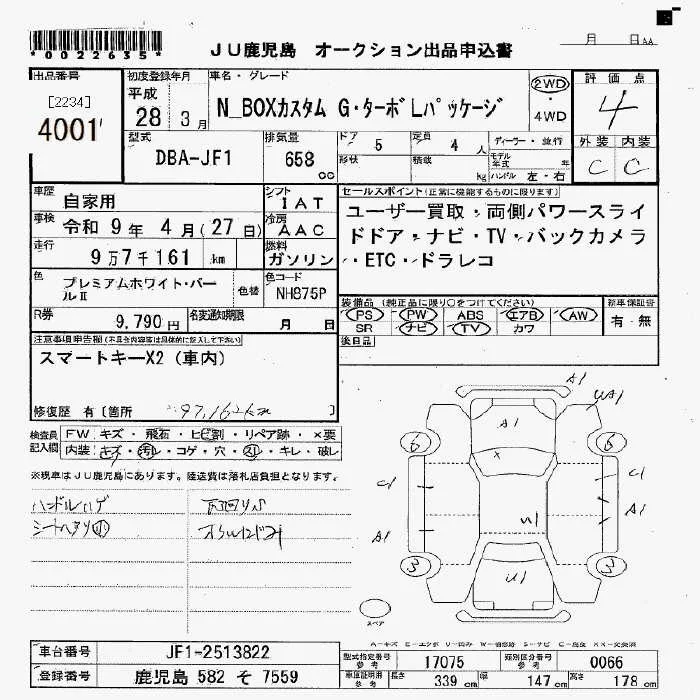 *0022635*
JU鹿児島 オークション出品申込書
月 日 AA
出品番号
[2234]
4001
初度登録年月
平成
28 3月
車名・グレード
N_BOXカスタム G・ターボLパッケージ
2WD
・
4WD
評価点
4
外装 内装
C C
型式
DBA-JF1
排気量
658
cc
ドア 5
形状
定員 4 人
積載 kg
ディーラー・並行
モデル年式 年
ハンドル 左・右
車歴
自家用
シフト
IAT
車検
令和 9年 4月(27日)
冷房
AAC
走行
9万7千161 km
燃料
ガソリン
色
プレミアムホワイト・パールⅡ
色替
色コード
NH875P
R券
9,790円
名変通知期限
月 日
セールスポイント(正常に機能するものに限ります)
ユーザー買取・両側パワースライ
ドドア・ナビ・TV・バックカメラ
・ETC・ドラレコ
装備品(純正品に限り○をつけてください)
PS PW ABS エアB AW
SR ナビ TV カワ
新車保証書
有・無
後日品
注意事項申告欄(不具合内容等は具体的に記入して下さい)
スマートキーX2(車内)
修復歴 有〔箇所 97,162km 〕
検査員記入欄
FW キズ・飛石・ヒビ割・リペア跡・×要
内装 キズ・汚レ・コゲ・穴・スレ・キレ・破レ
※現車はJU鹿児島にあります。陸送費は落札店負担となります。
ハンドルハゲ
シートヘタリ
下回りサビ
A1
UA1
A1
6 6
C1
A1
C1
A1
U1
U1
3 3
スペア
車台番号
JF1-2513822
登録番号
鹿児島 582 そ 7559
型式指定番号
参考
17075
類別区分番号
参考
0066
車庫証明用
参考
長さ 339 cm
幅 147 cm
高さ 178 cm